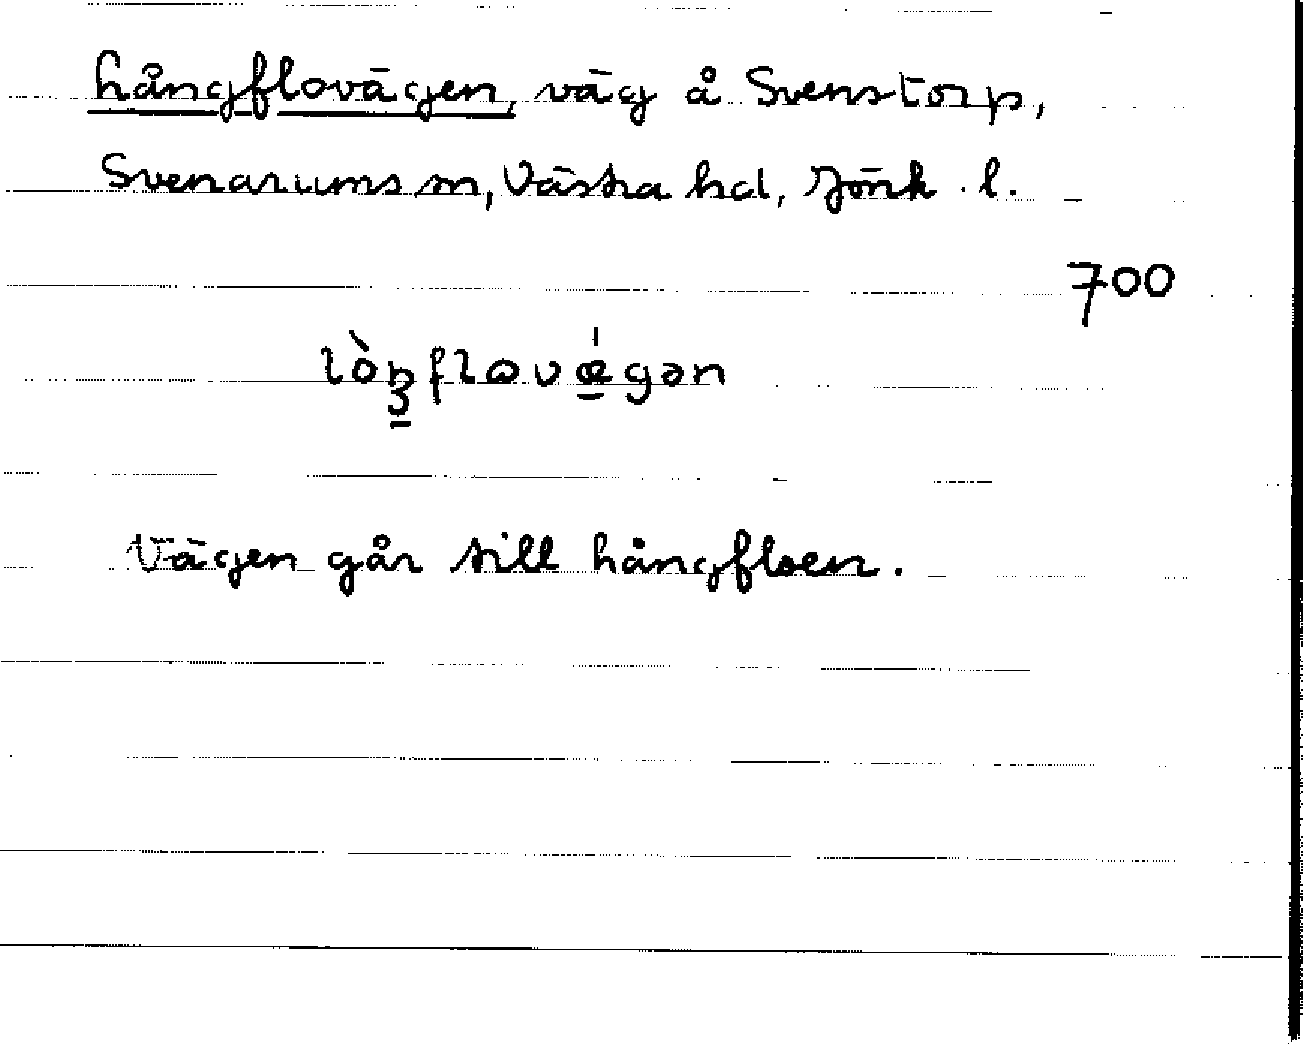 Långflovägen, väg å Svenstorp,
Svenarums sn, Västra hd, Jönk. l.
700
lòŋflovǽgən
Vägen går till Långfloen.